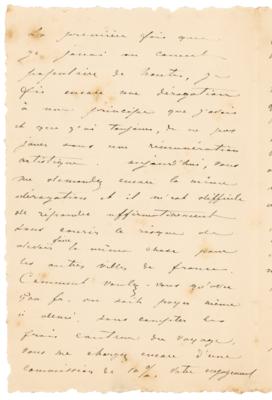 La première fois que
je jouai au concert
populaire de Nantes, je
fis encore une dérogation
à mon principe que j'avais
et que j'ai toujours, de ne pas
jouer sans une rémunération
artistique. Aujourd'hui, vous
me demandez encore la même
dérogation, et il m'est difficile
de répondre affirmativement
sans courir le risque de
devoir faire la même chose pour
les autres villes de France.
Comment voulez-vous qu'avec
on soit payé même
à demi, sans compter les
frais du voyage,
vous me chargez encore d'une
commission de 10% votre engagement